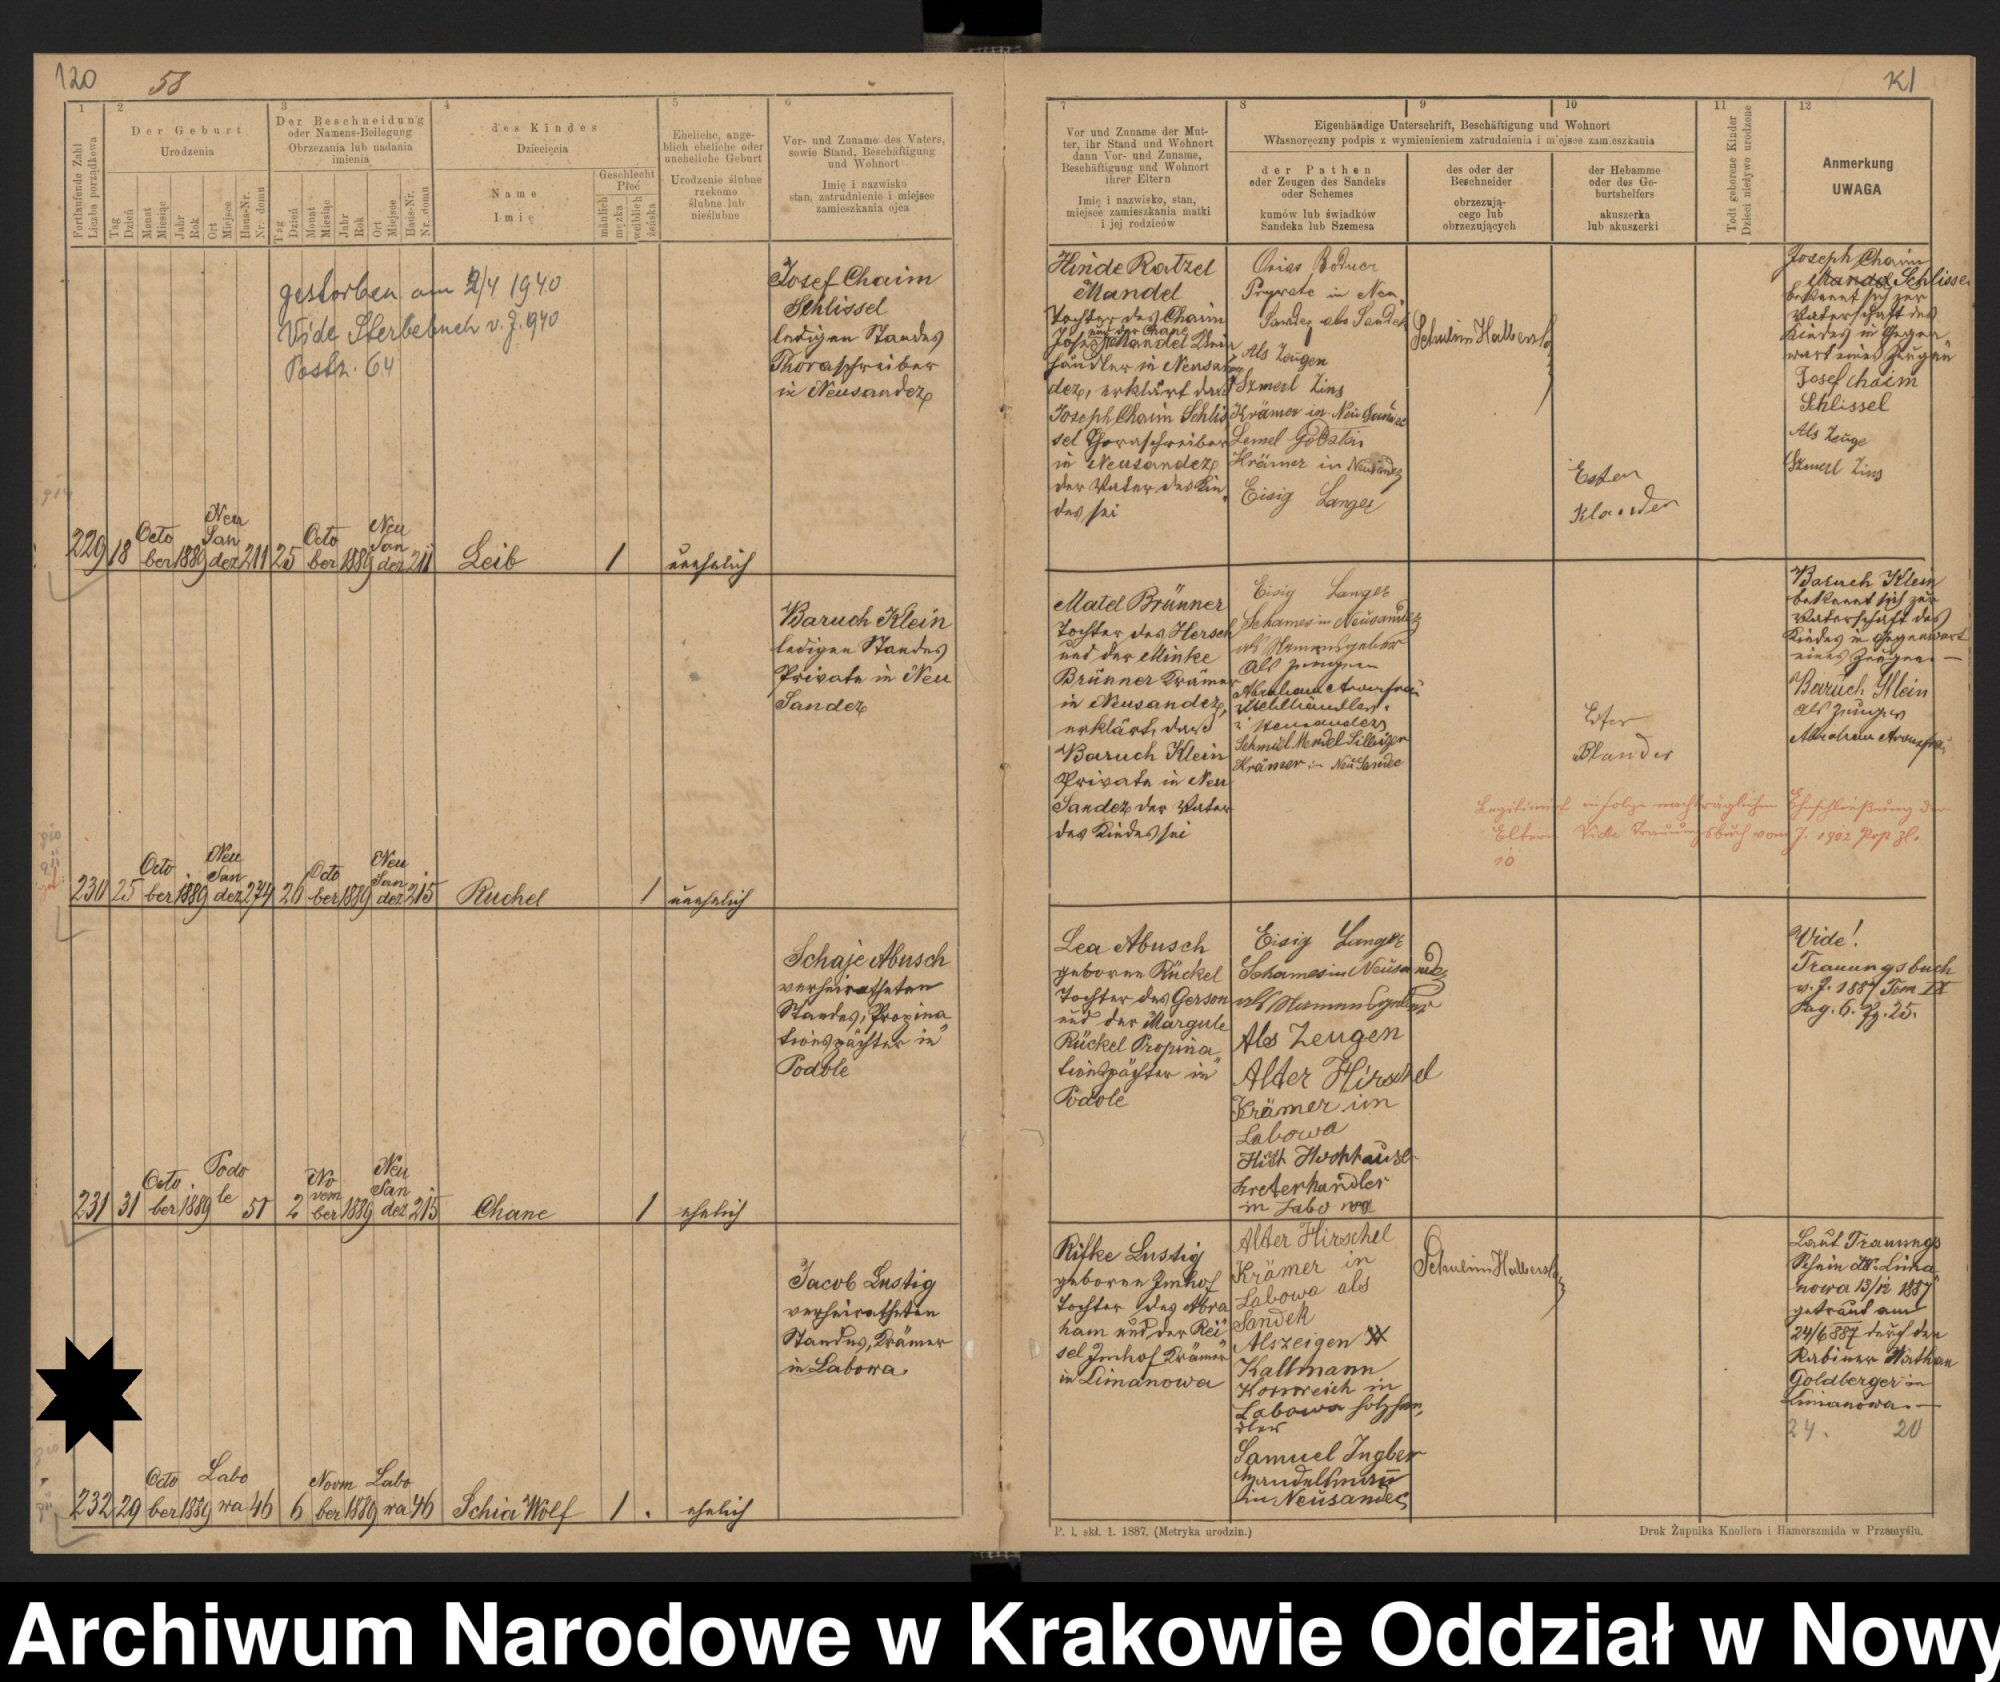 120
58
K1
1
2
3
4
5
6
7
8
9
10
11
12
Fortlaufende Zahl
Liczba porządkowa
Der Geburt
Urodzenia
Tag
Dzień
Monat
Miesiąc
Jahr
Rok
Ort
Miejsce
Haus-Nr.
Nr. domu
Der Beschneidung
oder Namens-Beilegung
Obrzezania lub nadania
imienia
Tag
Dzień
Monat
Miesiąc
Jahr
Rok
Ort
Miejsce
Haus-Nr.
Nr. domu
des Kindes
Dziecięcia
Name
Imię
Geschlecht
Płeć
männlich
męzka
weiblich
żeńska
Eheliche, ange-
blich eheliche oder
uneheliche Geburt
Urodzenie ślubne
rzekomo
ślubne lub
nieślubne
Vor- und Zuname des Vaters,
sowie Stand, Beschäftigung
und Wohnort
Imię i nazwisko
stan, zatrudnienie i miejsce
zamieszkania ojca
Vor und Zuname der Mut-
ter, ihr Stand und Wohnort
dann Vor- und Zuname,
Beschäftigung und Wohnort
ihrer Eltern
Imię i nazwisko, stan,
miejsce zamieszkania matki
i jej rodziców
Eigenhändige Unterschrift, Beschäftigung und Wohnort
Własnoręczny podpis z wymienieniem zatrudnienia i miejsce zamieszkania
der Pathen
oder Zeugen des Sandeks
oder Schemes
kumów lub świadków
Sandeka lub Szemesa
des oder der
Beschneider
obrzezują-
cego lub
obrzezujących
der Hebamme
oder des Ge-
burtshelfers
akuszerka
lub akuszerki
Todt geborene Kinder
Dzieci nieżywo urodzone
Anmerkung
UWAGA
gestorben am 2/4 1940
Vide Sterbebuch v. J. 940
Postz. 64
229 18 Octo
ber 1889 Neu
San
dez 211 25 Octo
ber 1889 Neu
San
dez 211
Leib 1 unehelich
Josef Chaim
Schlissel
ledigen Standes
Thoraschreiber
in Neusandez
Hinde Ratzel
Mandel
Tochter des Chaim
und der Chane
Josef Mandel Klein
händler in Neusan
dez, erklärt daß
Joseph Chaim Schlis
sel Thoraschreiber
in Neusandez
der Vater des Kin
des sei
Private in Neu
Sandez als Sandek
Als Zeugen
Szmerl Zins
Krämer in Neu Sandez
Lemel
Krämer in Neusandez
Eisig Langer
Schulim Halberst
Ester
Joseph Chaim
Mandel Schlissel
bekennt sich zur
Vaterschaft des
Kindes in Gegen
wart eines Zeugen
Josef Chaim
Schlissel
Als Zeuge
Szmerl Zins
230 25 Octo
ber 1889 Neu
San
dez 274 26 Octo
ber 1889 Neu
San
dez 215
Ruchel 1 unehelich
Baruch Klein
ledigen Standes
Private in Neu
Sandez
Matel Brünner
Tochter des Hersch
und der Minke
Brünner Krämer
in Neusandez,
erklärt, daß
Baruch Klein
Private in Neu
Sandez der Vater
des Kindes sei
Eisig Langer
Schames in Neusandez
als Namensgeber
als Zeugen
Schmiel Mendel
Krämer in Neu Sandez
Ester
Blander
Baruch Klein
bekennt sich zur
Vaterschaft des
Kindes in Gegenwart
eines Zeugen. —
Baruch Klein
als Zeuge
Legitimirt infolge nachträglicher Eheschließung der
Eltern Vide Trauungsbuch vom J. 1902
231 31 Octo
ber 1889 Podo
le 51 2 No
vem
ber 1889 Neu
San
dez 215
Chane 1 ehelich
Schaje Abusch
verheiratheten
Standes, Propina
tionspächter in
Podole
Lea Abusch
geborene Rückel
Tochter des Gerson
und der Margule
Rückel Propina
tionspächter in
Podole
Eisig Langer
Schames in Neusandez
als Namensgeber
Als Zeugen
Alter Hirschel
Krämer in
Labowa
in Labowa
Vide!
Trauungsbuch
v. J. 1887 Tom IX
Pag. 6. Zg. 25.
232 29 Octo
ber 1889 Labo
wa 46 6 Novm
ber 1889 Labo
wa 46
Schia Wolf 1 ehelich
Jacob Lustig
verheiratheten
Standes, Krämer
in Labowa.
Rifke Lustig
geborene Imhof
Tochter des Abra
ham und der Rei
sel Imhof Krämer
in Limanowa
Alter Hirschel
Krämer in
Labowa als
Sandek
Als zeigen
Kallmann
Kornreich in
Labowa holzhän
dler
Samuel Ingber
Handelsmann
in Neusandez
Schulim Halberst
Laut Trauungs
Schein dto Lima
nowa 13/12 1887
getraut am
24/6 887 durch den
Rabiner Nathan
Goldberger in
Limanowa. —
24. 20
P. l. skł. 1. 1887. (Metryka urodzin.)
Druk Żupnika Knollera i Hamerszmida w Przemyślu.
Archiwum Narodowe w Krakowie Oddział w Nowy